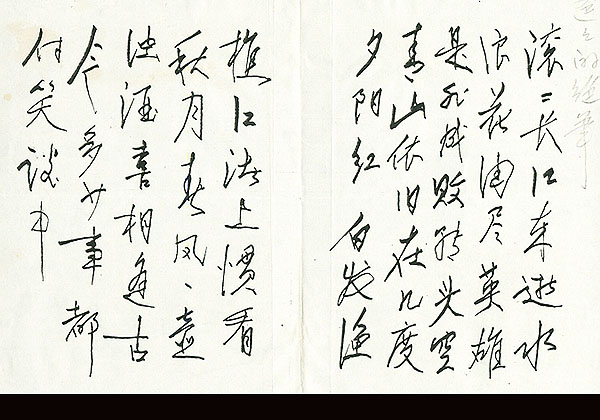 滚〻长江东逝水
浪花淘尽英雄
是非成败转头空
青山依旧在几度
夕阳红 白发渔
樵江渚上惯看
秋月春风一壶
浊酒喜相逢古
今多少事 都
付笑谈中